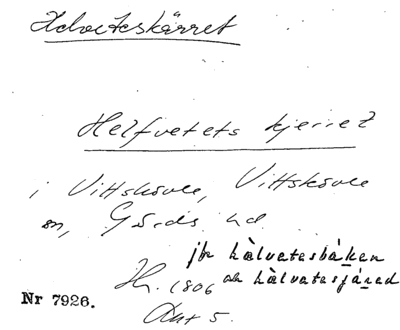 Helveteskärret
Helfvetets kjerret
i Vittskövle, Vittskövle
sn, Gärds hd
jfr hàlvatesbàken
Hr. 1806 och hàlvatesjáred
Akt 5.
Nr 7926.